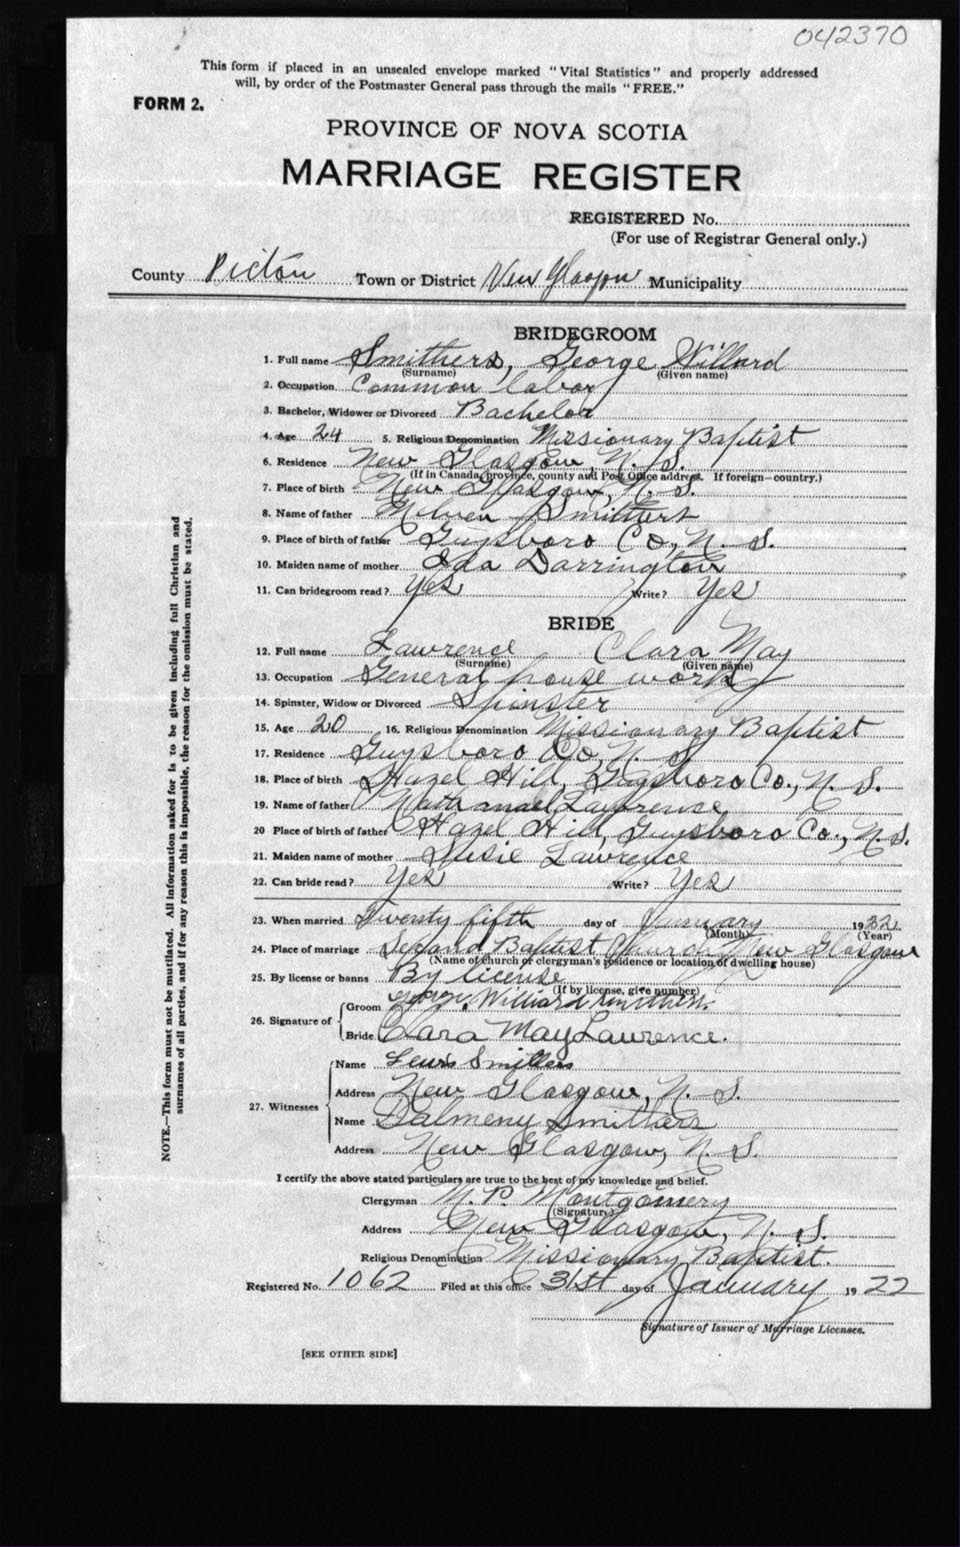 042370
This form if placed in an unsealed envelope marked "Vital Statistics" and properly addressed
will, by order of the Postmaster General pass through the mails "FREE."
FORM 2.
PROVINCE OF NOVA SCOTIA
MARRIAGE REGISTER
REGISTERED No.
(For use of Registrar General only.)
County Pictou Town or District New Glasgow Municipality
BRIDEGROOM
1. Full name Smithers, George Willard
(Surname) (Given name)
2. Occupation Common labor
3. Bachelor, Widower or Divorced Bachelor
4. Age 24 5. Religious Denomination Missionary Baptist
6. Residence New Glasgow, N. S.
(If in Canada, province, county and Post Office address. If foreign—country.)
7. Place of birth New Glasgow, N. S.
8. Name of father Smithers
9. Place of birth of father Guysboro Co., N. S.
10. Maiden name of mother Ida Darrington
11. Can bridegroom read? Yes Write? Yes
BRIDE
12. Full name Lawrence Clara May
(Surname) (Given name)
13. Occupation General house work
14. Spinster, Widow or Divorced Spinster
15. Age 20 16. Religious Denomination Missionary Baptist
17. Residence Guysboro Co, N. S.
18. Place of birth Hazel Hill, Guysboro Co., N. S.
19. Name of father Nathanael Lawrence
20 Place of birth of father Hazel Hill, Guysboro Co., N. S.
21. Maiden name of mother Susie Lawrence
22. Can bride read? Yes Write? Yes
23. When married Twenty fifth day of January 19
(Month) (Year)
24. Place of marriage Second Baptist Church New Glasgow
(Name of church of clergyman's residence or location of dwelling house)
25. By license or banns By license
(If by license, give number)
26. Signature of
Groom George Williard Smithers.
Bride Clara May Lawrence.
27. Witnesses
Name Lewis Smithers
Address New Glasgow, N. S.
Name Dalmeny Smithers
Address New Glasgow, N. S.
I certify the above stated particulars are true to the best of my knowledge and belief.
Clergyman M. P. Montgomery
(Signature)
Address New Glasgow, N. S.
Religious Denomination Missionary Baptist.
Registered No. 1062 Filed at this office 31st day of January 1922
Signature of Issuer of Marriage Licenses.
[SEE OTHER SIDE]
NOTE.—This form must not be mutilated. All information asked for is to be given including full Christian and
surnames of all parties, and if for any reason this is impossible, the reason for the omission must be stated.